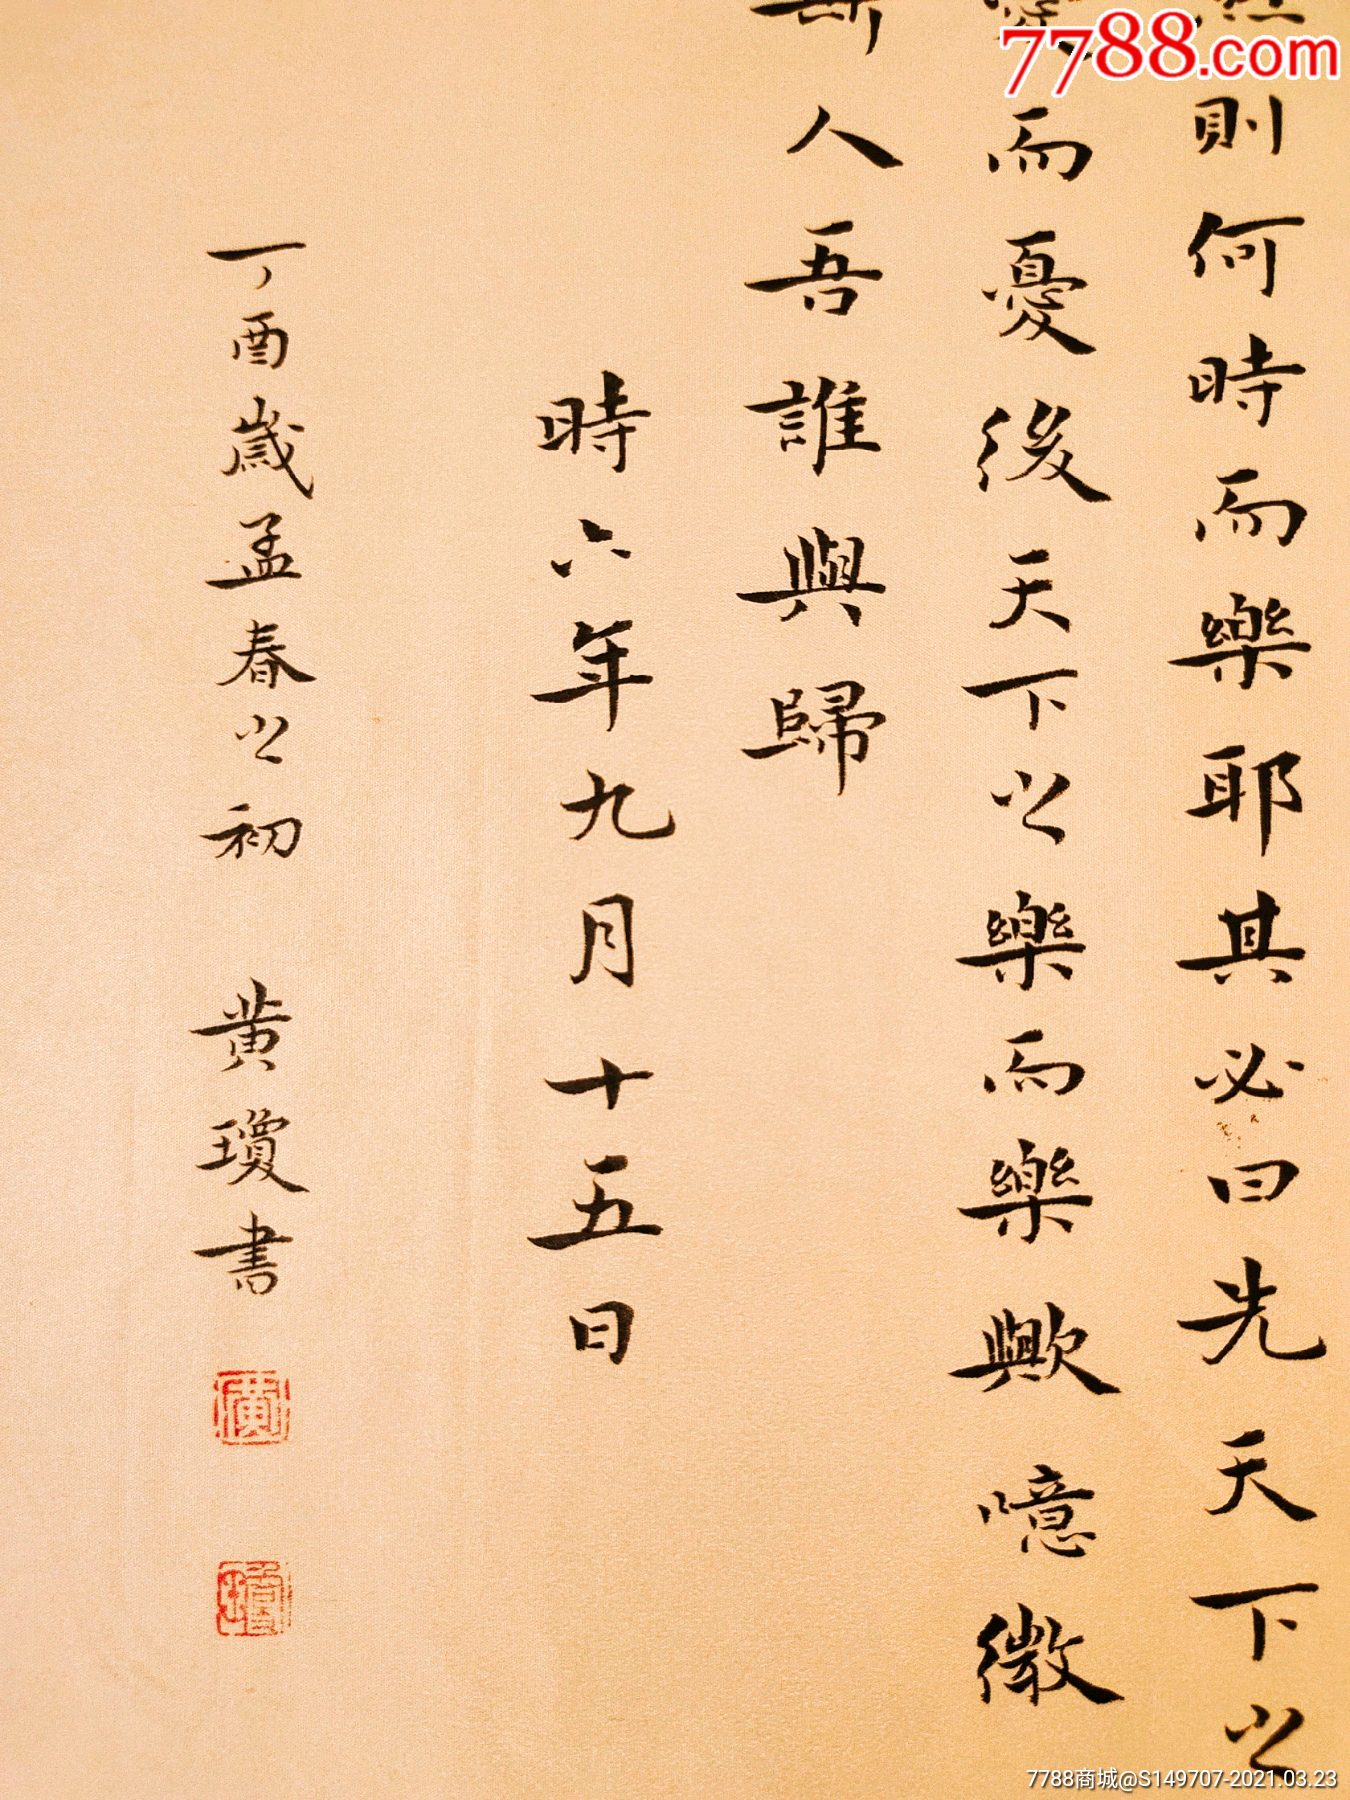 然則何時而樂耶其必曰先天下之
憂而憂後天下之樂而樂歟噫微
斯人吾誰與歸
時六年九月十五日
丁酉歲孟春之初 黄瓊書
黃
瓊
7788.com
7788商城@S149707-2021.03.23